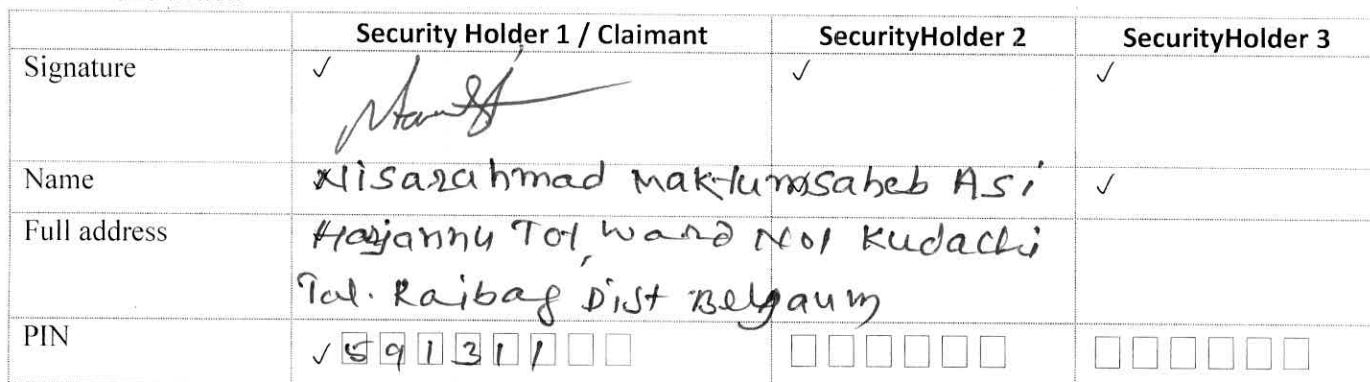 Security Holder 1 / Claimant SecurityHolder 2 SecurityHolder 3
Signature ✓ ✓ ✓
Name Nisarahmad Maktumsaheb Asi ✓
Full address Tot, Ward No1 Kudachi
Tal. Raibag Dist Belgaum
PIN ✓ 591311